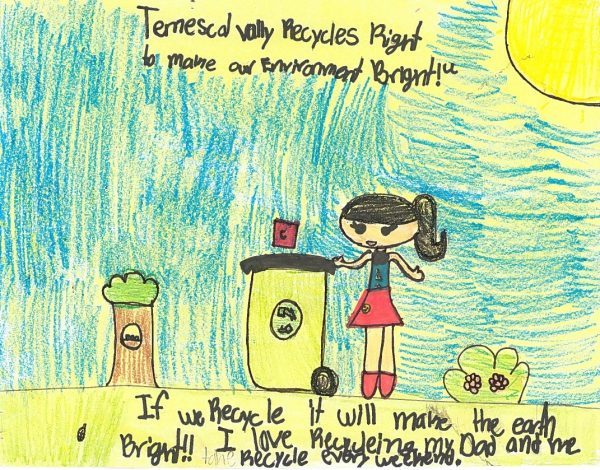 Temescal Vally Recycles Right
to make our Environment Bright!!"
If we Recycle it will make the earth
Bright!! I love Recycleing my Dad and me
Recycle every weekend.